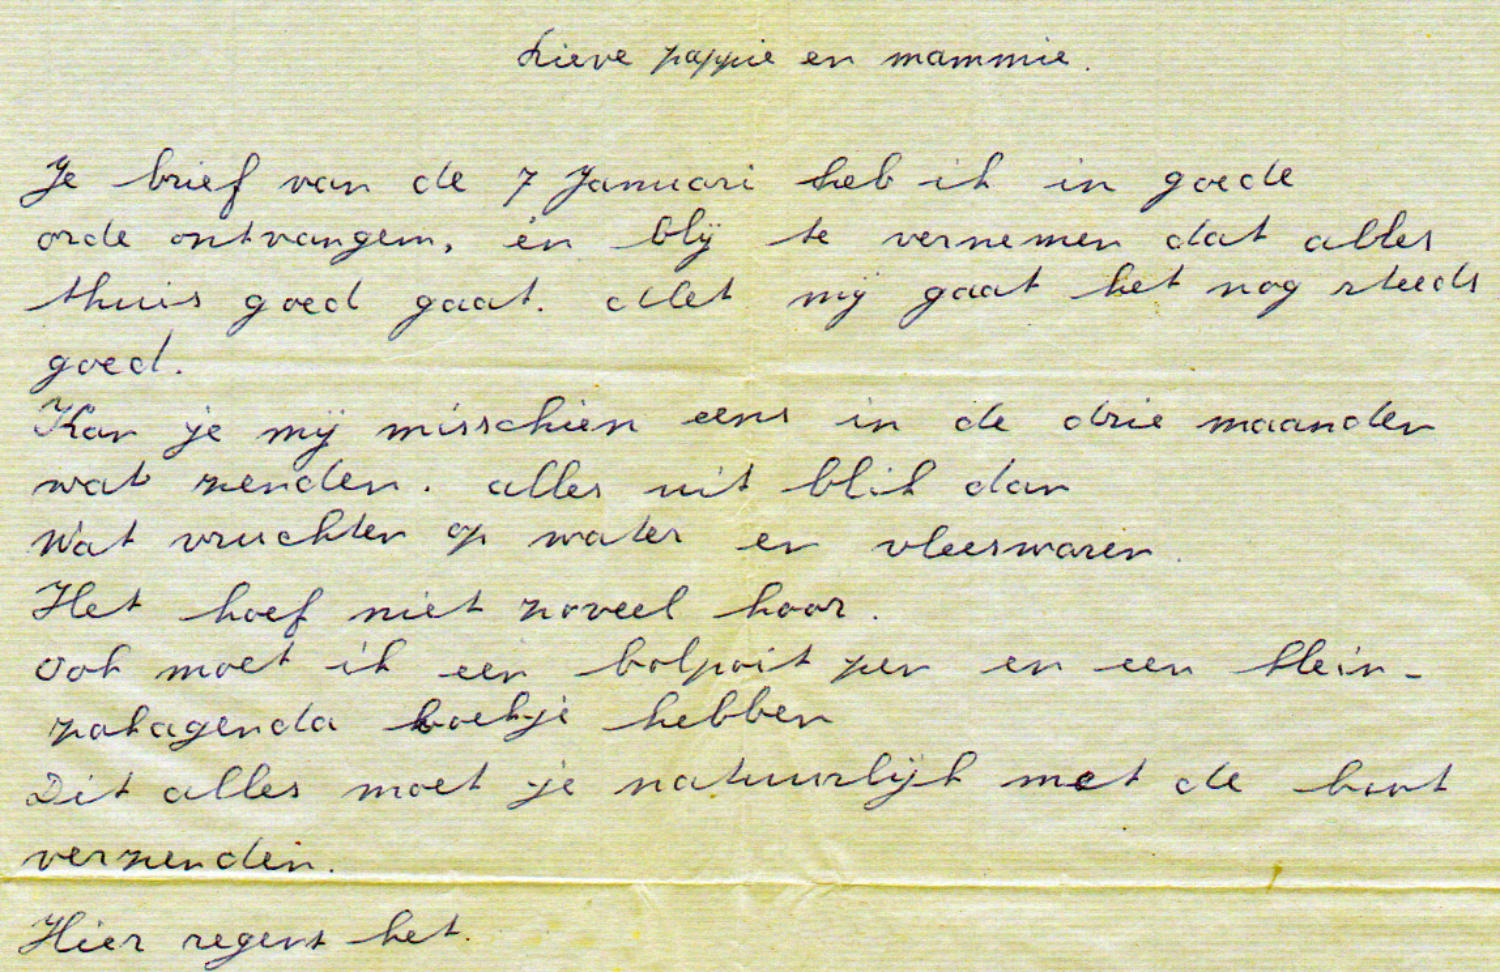 Lieve pappie en mammie.
Je brief van de 7 Januari heb ik in goede
orde ontvangen, en blij te vernemen dat alles
thuis goed gaat. Met mij gaat het nog steeds
goed.
Kan je mij misschien eens in de drie maanden
wat zenden. alles uit blik dan
Wat vruchten op water en vleeswaren.
Het hoef niet zoveel hoor.
Ook moet ik een bolpoit pen en een klein-
zakagenda boekje hebben
Dit alles moet je natuurlijk met de boot
verzenden.
Hier regent het.